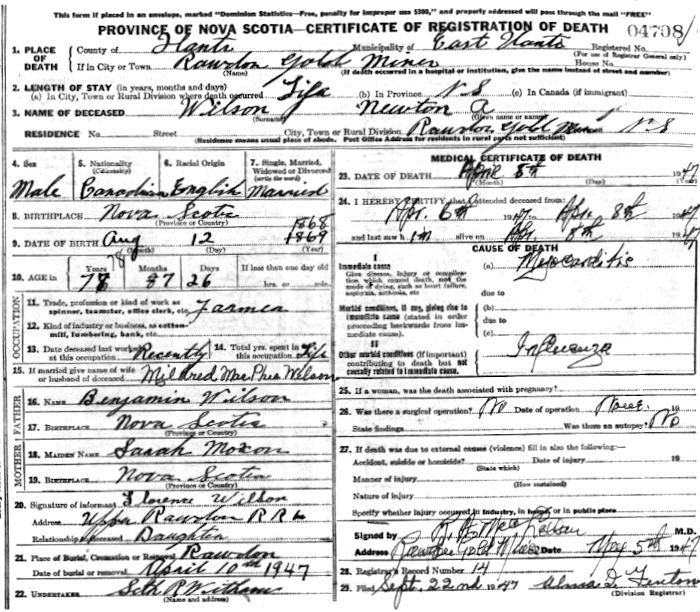 This form if placed in an envelope, marked "Dominion Statistics—Free, penalty for improper use $300," and properly addressed will pass through the mail "FREE"
PROVINCE OF NOVA SCOTIA—CERTIFICATE OF REGISTRATION OF DEATH 04708
1. PLACE OF DEATH County of Hants Municipality of East Hants Registered No.
(For use of Registrar General only)
If in City or Town Rawdon Gold Mines House No.
(Name) (If death occurred in a hospital or institution, give the name instead of street and number)
2. LENGTH OF STAY (in years, months and days)
(a) In City, Town or Rural Division where death occurred Life (b) In Province N-S (c) In Canada (if immigrant)
3. NAME OF DECEASED Wilson Newton A
(Surname) (Given name or names)
RESIDENCE No. Street City, Town or Rural Division Rawdon Gold Mines N-S
(Residence means usual place of abode. Post Office Address for residents in rural parts not sufficient)
4. Sex Male
5. Nationality (Citizenship) Canadian
6. Racial Origin English
7. Single, Married, Widowed or Divorced (write the word) Married
8. BIRTHPLACE Nova Scotia
(Province or Country)
9. DATE OF BIRTH Aug 12 1868 1867
(Month) (Day)
10. AGE in Years 78 78 Months 87 Days 26 If less than one day old
hrs. or min.
OCCUPATION
11. Trade, profession or kind of work as spinner, teamster, office clerk, etc. Farmer
12. Kind of industry or business, as cotton-mill, lumbering, bank, etc.
13. Date deceased last worked at this occupation Recently 14. Total yrs. spent in this occupation Life
15. If married give name of wife or husband of deceased Mildred MacPhee Wilson
FATHER
16. NAME Benjamin Wilson
17. BIRTHPLACE Nova Scotia
(Province or Country)
MOTHER
18. MAIDEN NAME Sarah Moxon
19. BIRTHPLACE Nova Scotia
(Province or Country)
20. Signature of informant Florence Wilson
Address Upper Rawdon R R
Relationship to deceased Daughter
21. Place of Burial, Cremation or Removal Rawdon
Date of burial or removal April 10th 1947
22. UNDERTAKER Seth P. Withrow
(Name and address)
MEDICAL CERTIFICATE OF DEATH
23. DATE OF DEATH April 8th 1947
(Month) (Day)
24. I HEREBY CERTIFY that I attended deceased from:
Apr. 6th 1947 to Apr. 8th 1947
and last saw h im alive on Apr. 8th 1947
CAUSE OF DEATH
I
Immediate cause
Give disease, injury or complication which caused death, not the mode of dying, such as heart failure, asphyxia, asthenia, etc
(a) Myocarditis
due to
Morbid conditions, if any, giving rise to immediate cause (stated in order proceeding backwards from immediate cause).
(b)
due to
(c)
II
Other morbid conditions (if important) contributing to death but not causally related to immediate cause.
Influenza
25. If a woman, was the death associated with pregnancy?
26. Was there a surgical operation? No Date of operation None
State findings Was there an autopsy? No
27. If death was due to external causes (violence) fill in also the following:—
Accident, suicide or homicide? Date of injury
(State which)
Manner of injury
(How sustained)
Nature of injury
Specify whether injury occurred in industry, in home, or in public place
Signed by M.D.
Address Rawdon Gold Mines Date May 5th 1947
28. Registrar's Record Number 14
29. Filed Sept. 22nd 1947 Alma G. Fenton
(Division Registrar)